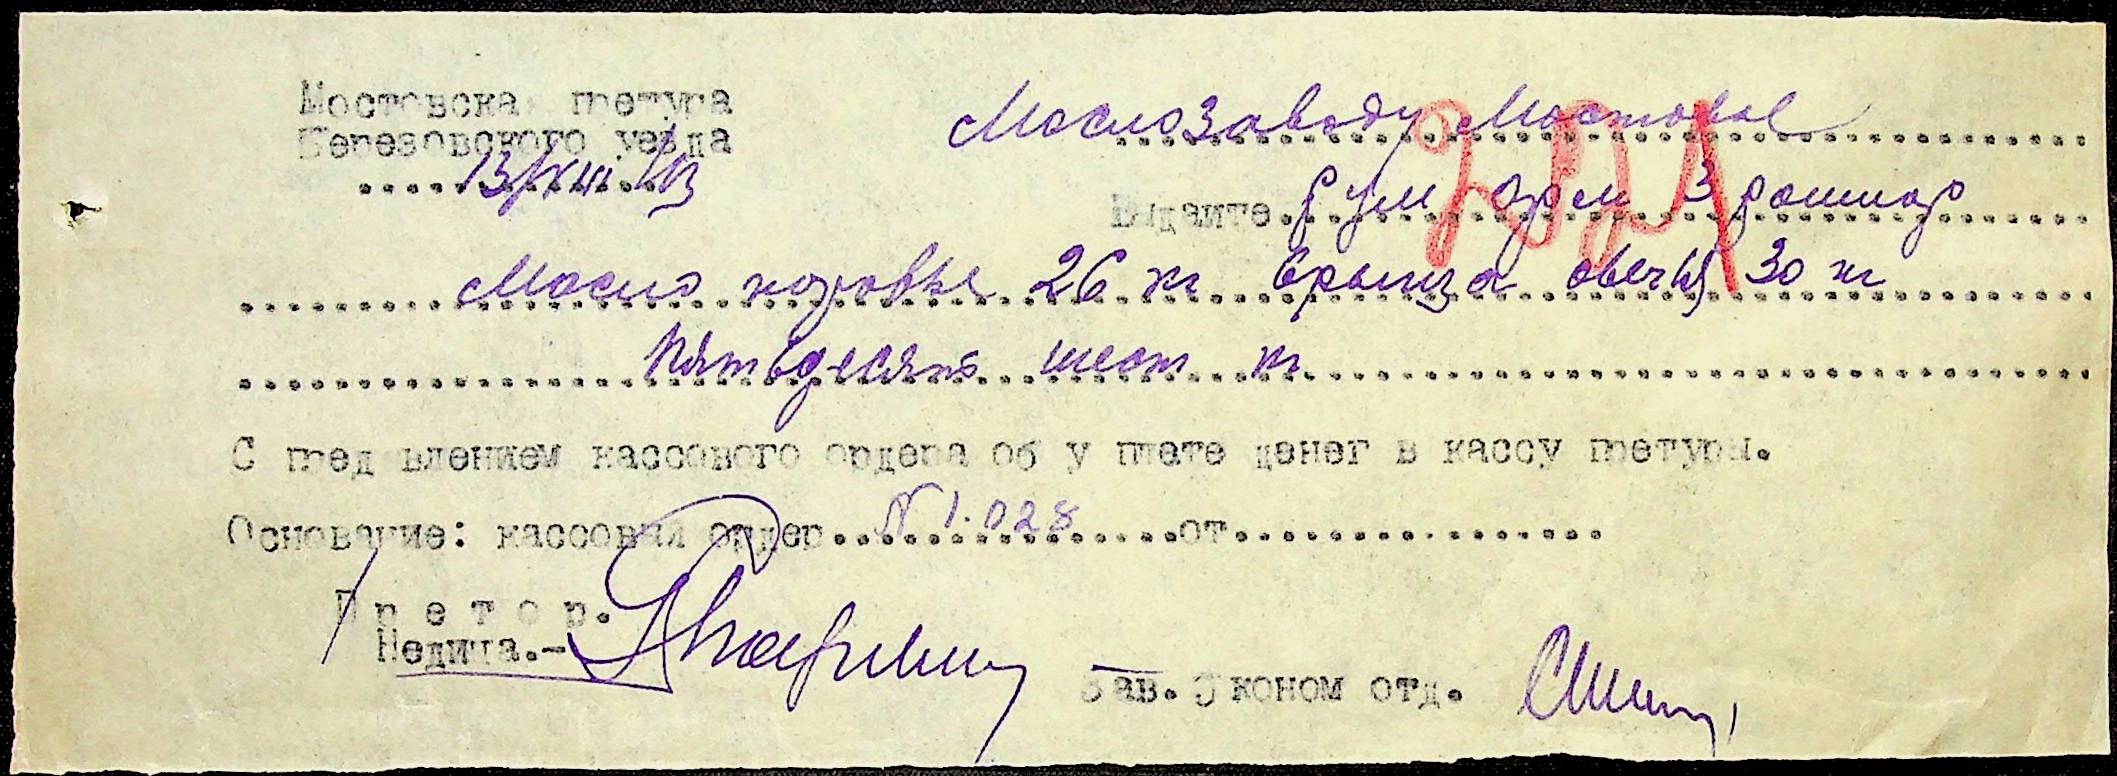 Мостовска претура
Березовского уезда
Маслозаводу Мостовое
13/XIII.43
Выдайте рум арм 3
Масло коровье 26 кг брынза овечья 30 кг
Пятьдесять шест кг
С пред влением кассового ордера об у плате денег в кассу претуры.
Основание: кассовый ордер N 1.028 от
Претор.
Недича.-
Зав. Эконом отд.